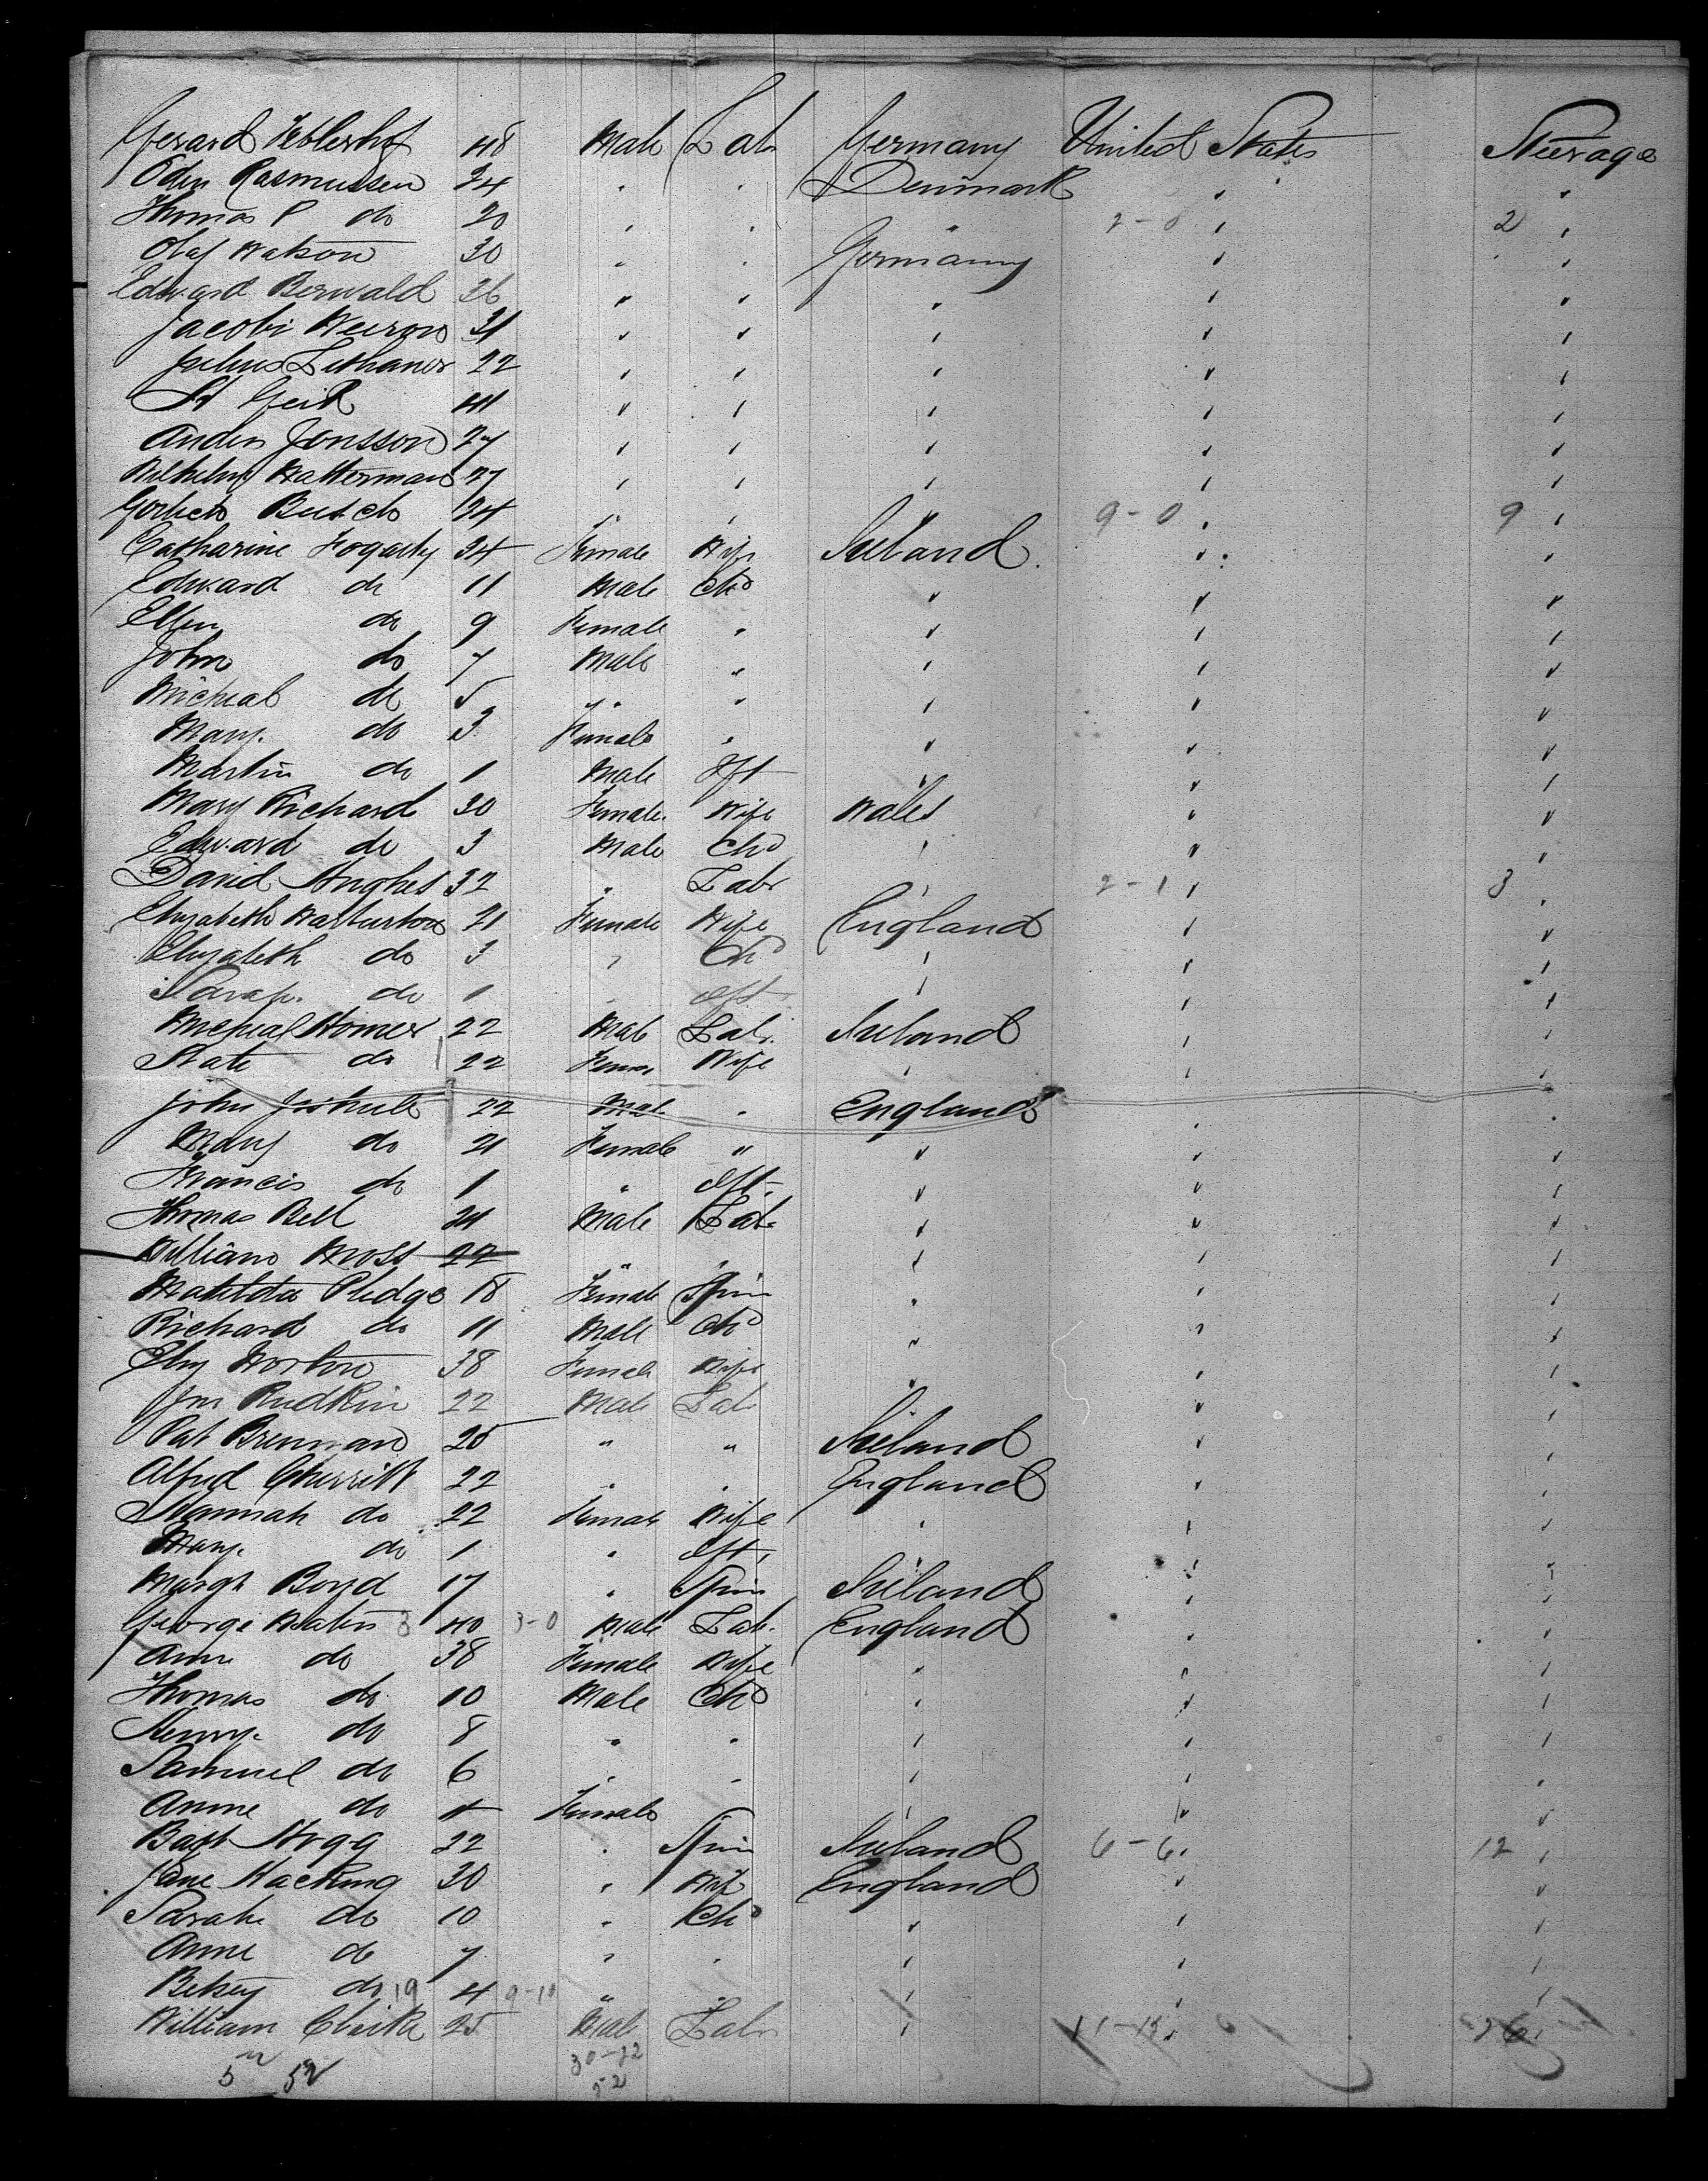 Gerard 48 Male Lab Germany United States Steerage
Oden Rasmussen 24 " " Denmark " "
Thomas P do 20 " " " 2-0 " 2 "
Olaf Watson 30 " " Germany " "
Edward Berwald 36 " " " " "
Jacobi 31 " " " " "
Julius 22 " " " " "
41 " " " " "
Anders Jonsson 27 " " " " "
Wilhelm Watterman 27 " " " " "
Busch 24 " " " 9-0 " 9 "
Catharine Fogarty 34 Female Wife Ireland " "
Edward do 11 Male Chd " " "
Ellen do 9 Female " " " "
John do 7 Male " " " "
Micheal do 5 " " " " "
Mary do 3 Female " " " "
Martin do 1 Male Ift " " "
Mary Richard 30 Female Wife Wales " "
Edward do 3 Male Chd " " "
David Hughes 32 " Labr " 2-1 " 3 "
Elizabeth Warburton 21 Female Wife England " "
Elizabeth do 3 " Chd " " "
Sarah do 1 " Ift " " "
Micheal Homer 22 Male Lab. Ireland " "
Kate do 22 Femal Wife " " "
John 22 Mal " England " "
Mary do 21 Female " " " "
Francis do 1 " Ift " " "
Thomas Bell 24 Male Lab " " "
William Moss 22 " " " " "
Matilda Pledge 18 Female Spin " " "
Richard do 11 Male Chd " " "
Eliz Norton 38 Female Wife " " "
Jno Rudkin 22 Male Lab " "
Pat Brennan 25 " " Ireland " "
Alfred 22 " " England " "
Hannah do 22 Female Wife " " "
Mary do 1 " Ift, " " "
Margt Boyd 17 " Spin Ireland " "
George 3 40 3-0 Male Lab. England " "
Ann do 38 Female Wife " " "
Thomas do 10 Male Chd " " "
Henry do 8 " " " " "
Samuel do 6 " " " " "
Anne do 4 Female " " "
Hogg 22 " Spin Ireland 6-6 " 12 "
Jane Hacking 30 " Wife England " "
Sarah do 10 " Chd " " "
Anne do 7 " " " " "
Betsey do 19 4 9-10 " " " " "
William 25 Male Labr " 11-15 " 26 "
5 52 30-22
52